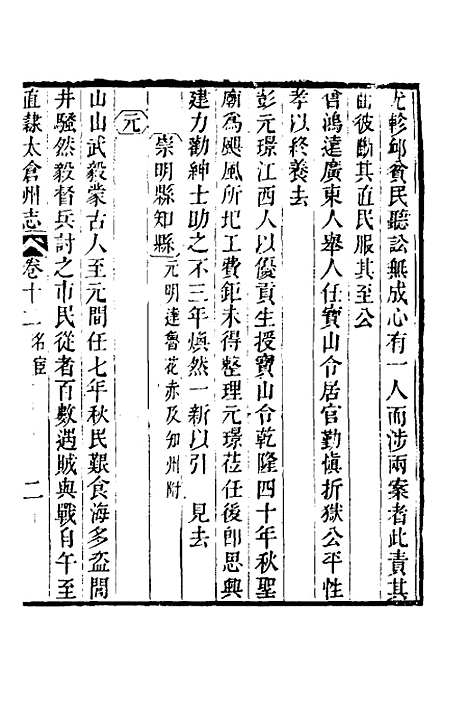 尤軫邱貧民聽訟無成心有一人而涉兩案者此責其
曲彼斷其直民服其至公
曾鴻達廣東人舉人任寶山令居官勤愼折獄公平性
孝以終養去
彭元璟江西人以優貢生授寶山令乾隆四十年秋聖
廟爲颶風所圮工費鉅未得整理元璟莅任後卽思興
建力勸紳士助之不三年煥然一新以引 見去
崇明縣知縣元明達魯花赤及知州附
元
山山武毅蒙古人至元間任七年秋民艱食海多盜閭
井騷然毅督兵討之市民從者百數遇賊與戰自午至
直隸太倉州志 卷十二 名宦 二